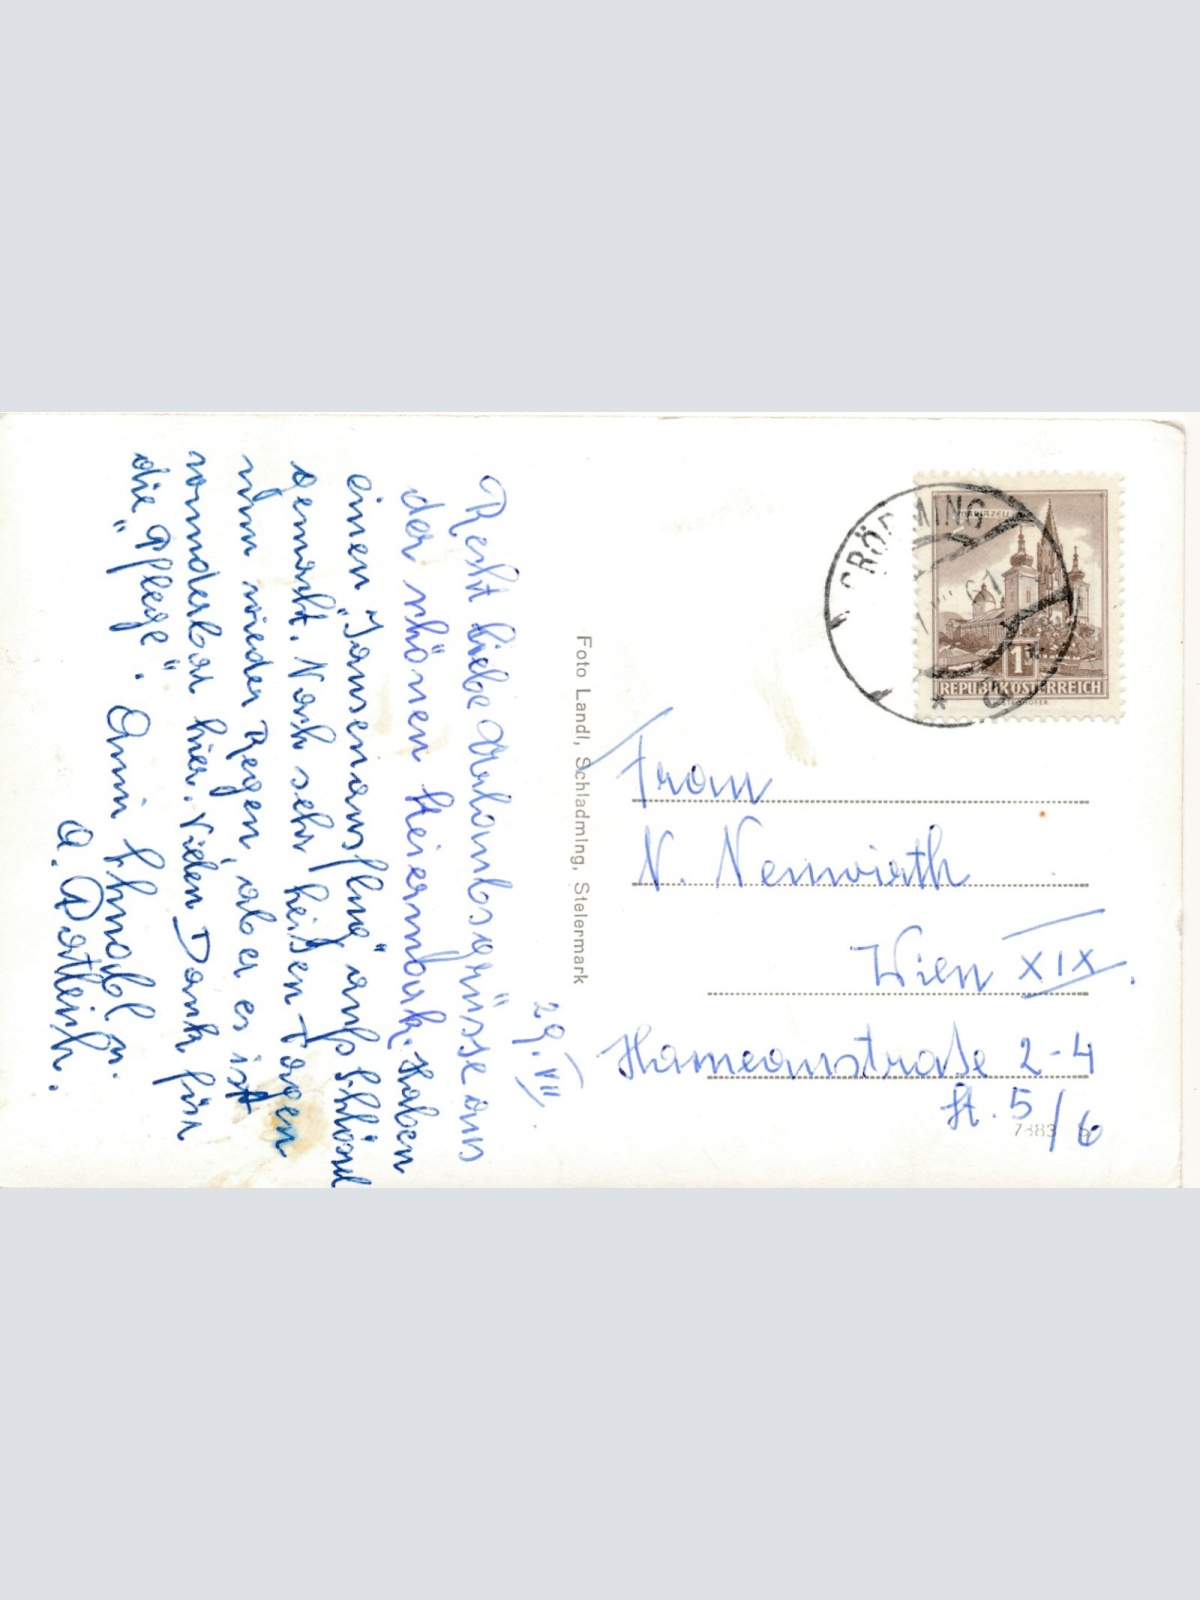 29. VII.
Recht liebe Urlaubsgrüsse aus
der schönen Steiermark. Haben
einen „Tausenausflug" aufs
gemacht. Nach sehr heißen Tagen
nun wieder Regen, aber es ist
wunderbar hier. Vielen Dank für
die „Pflege".
u.
Foto Landl, Schladming, Steiermark
GRÖBMING
61
MARIAZELL
1 S
REPUBLIK ÖSTERREICH
Frau
N. Neuwirth
Wien XIX.
Hameaustraße 2-4
St. 5/6
7883